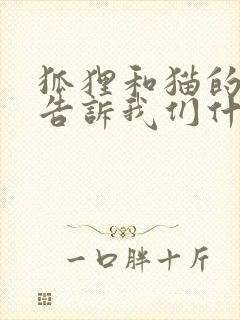 狐狸和猫的
告訴我们什
一口胖十斤